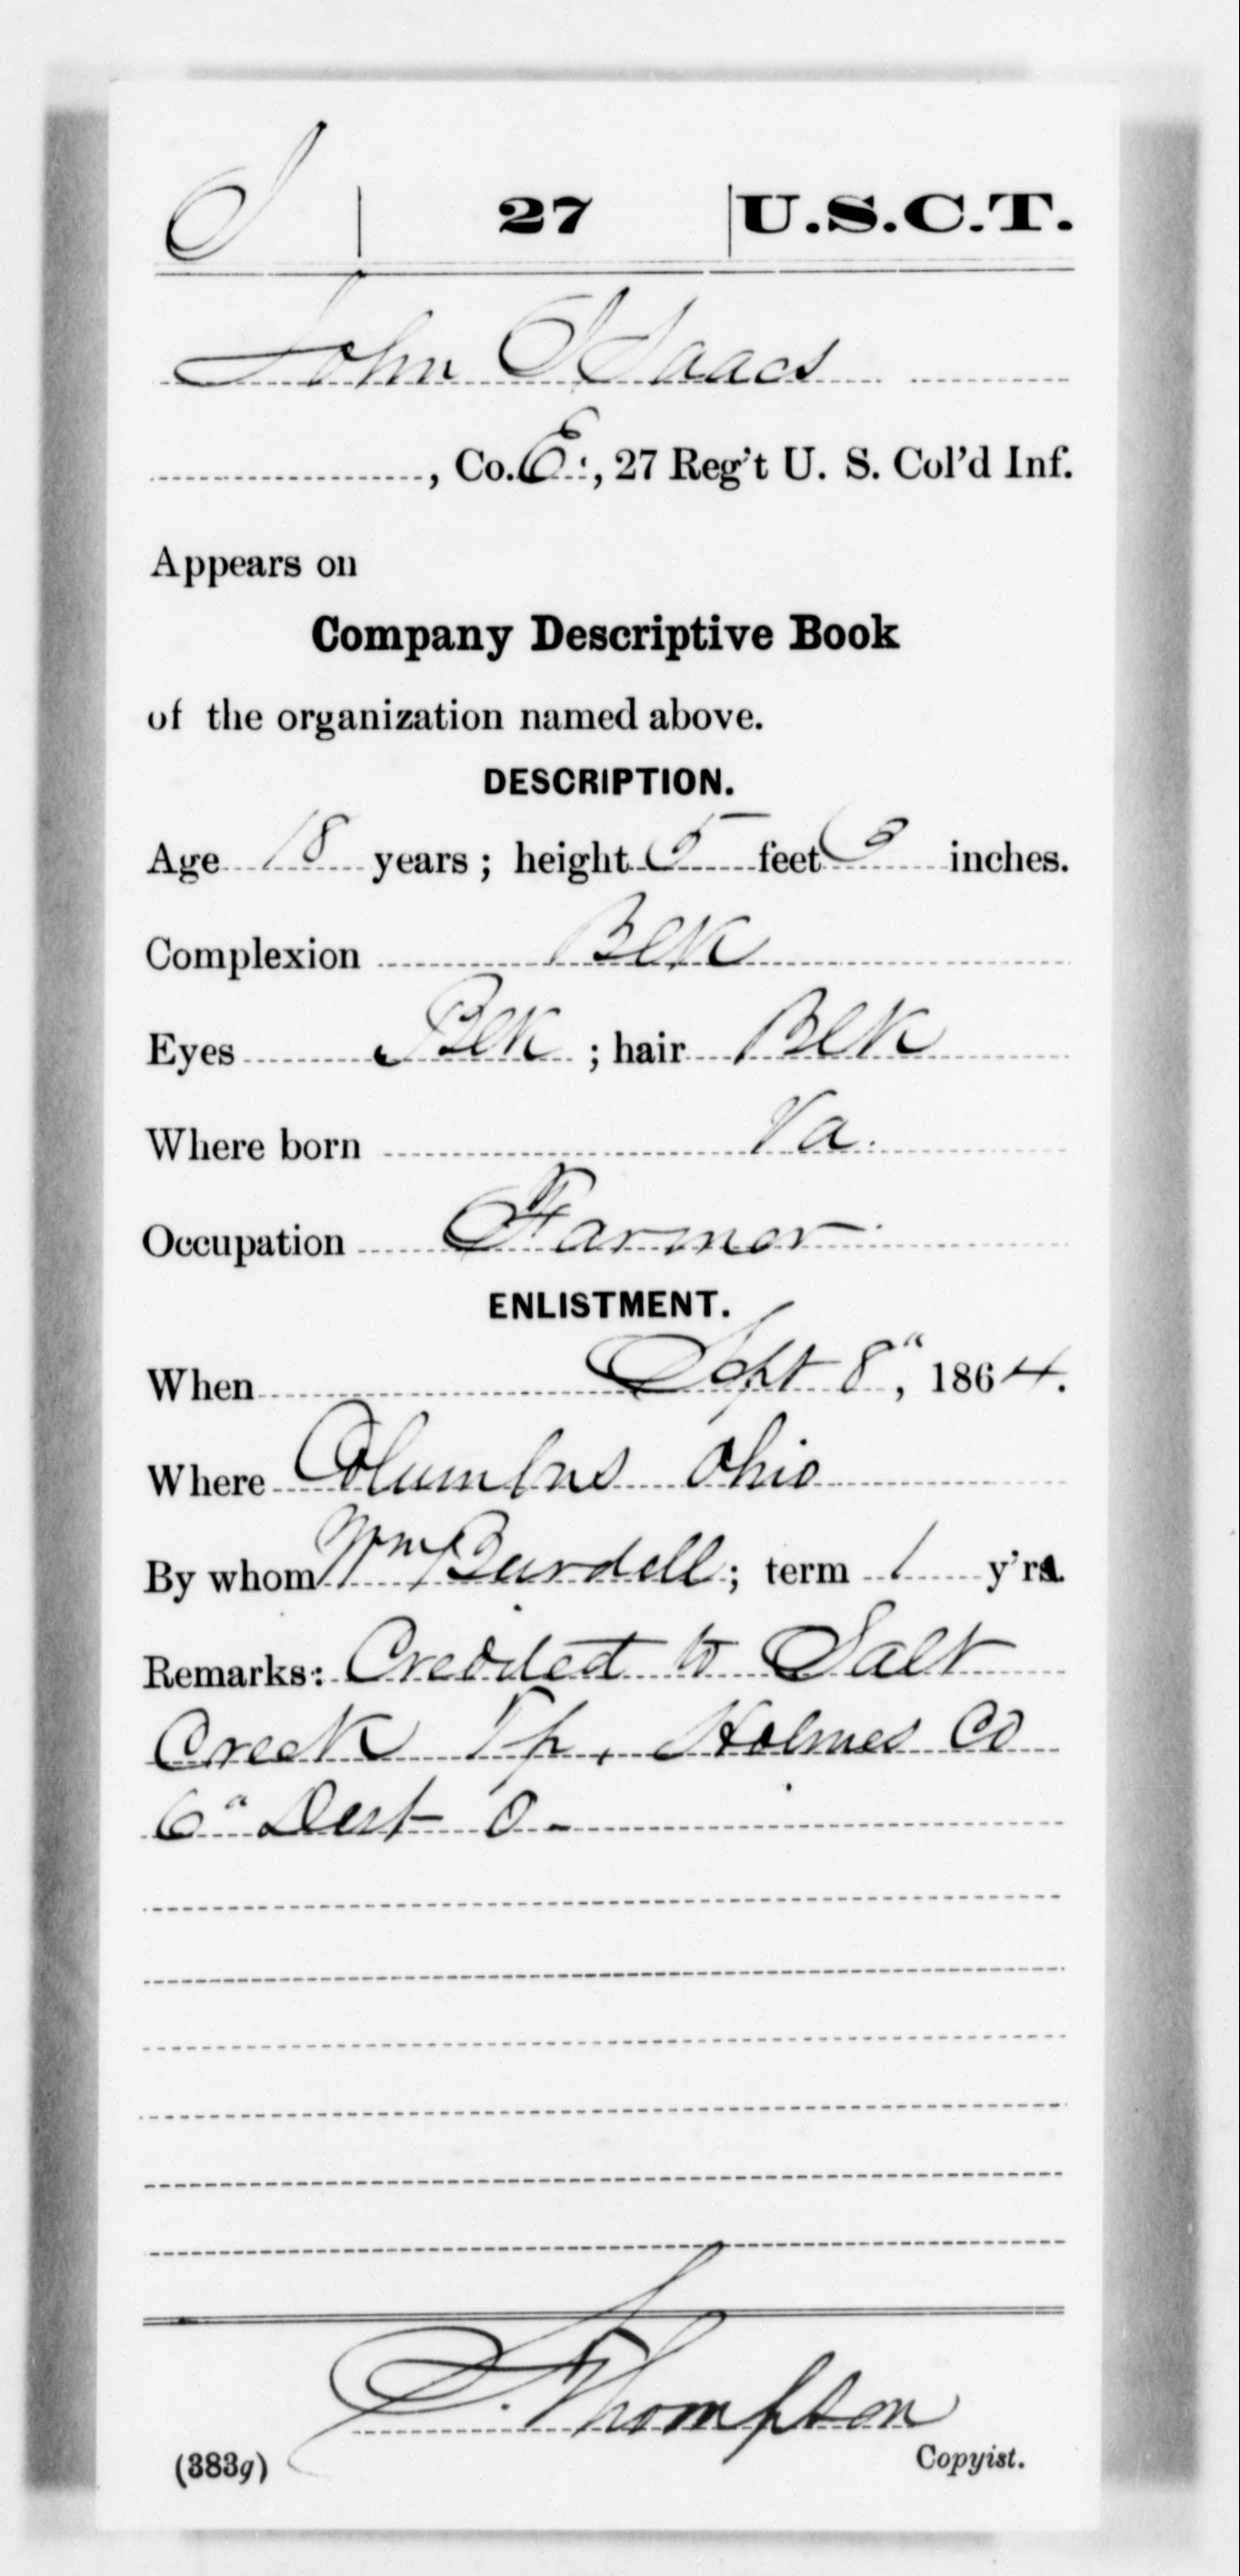 I | 27 | U.S.C.T.
John Isaacs
, Co. E., 27 Reg't U. S. Col'd Inf.
Appears on
Company Descriptive Book
of the organization named above.
DESCRIPTION.
Age 18 years; height 5 feet 3 inches.
Complexion Blk
Eyes Blk; hair Blk
Where born Va.
Occupation Farmer
ENLISTMENT.
When Sept 8", 1864.
Where Columbus Ohio
By whom Wm Burdell; term 1 y'rs.
Remarks: Credited to Salt
Creek Tp, Holmes Co
6" Dist O-
S. Thompson
(383g) Copyist.